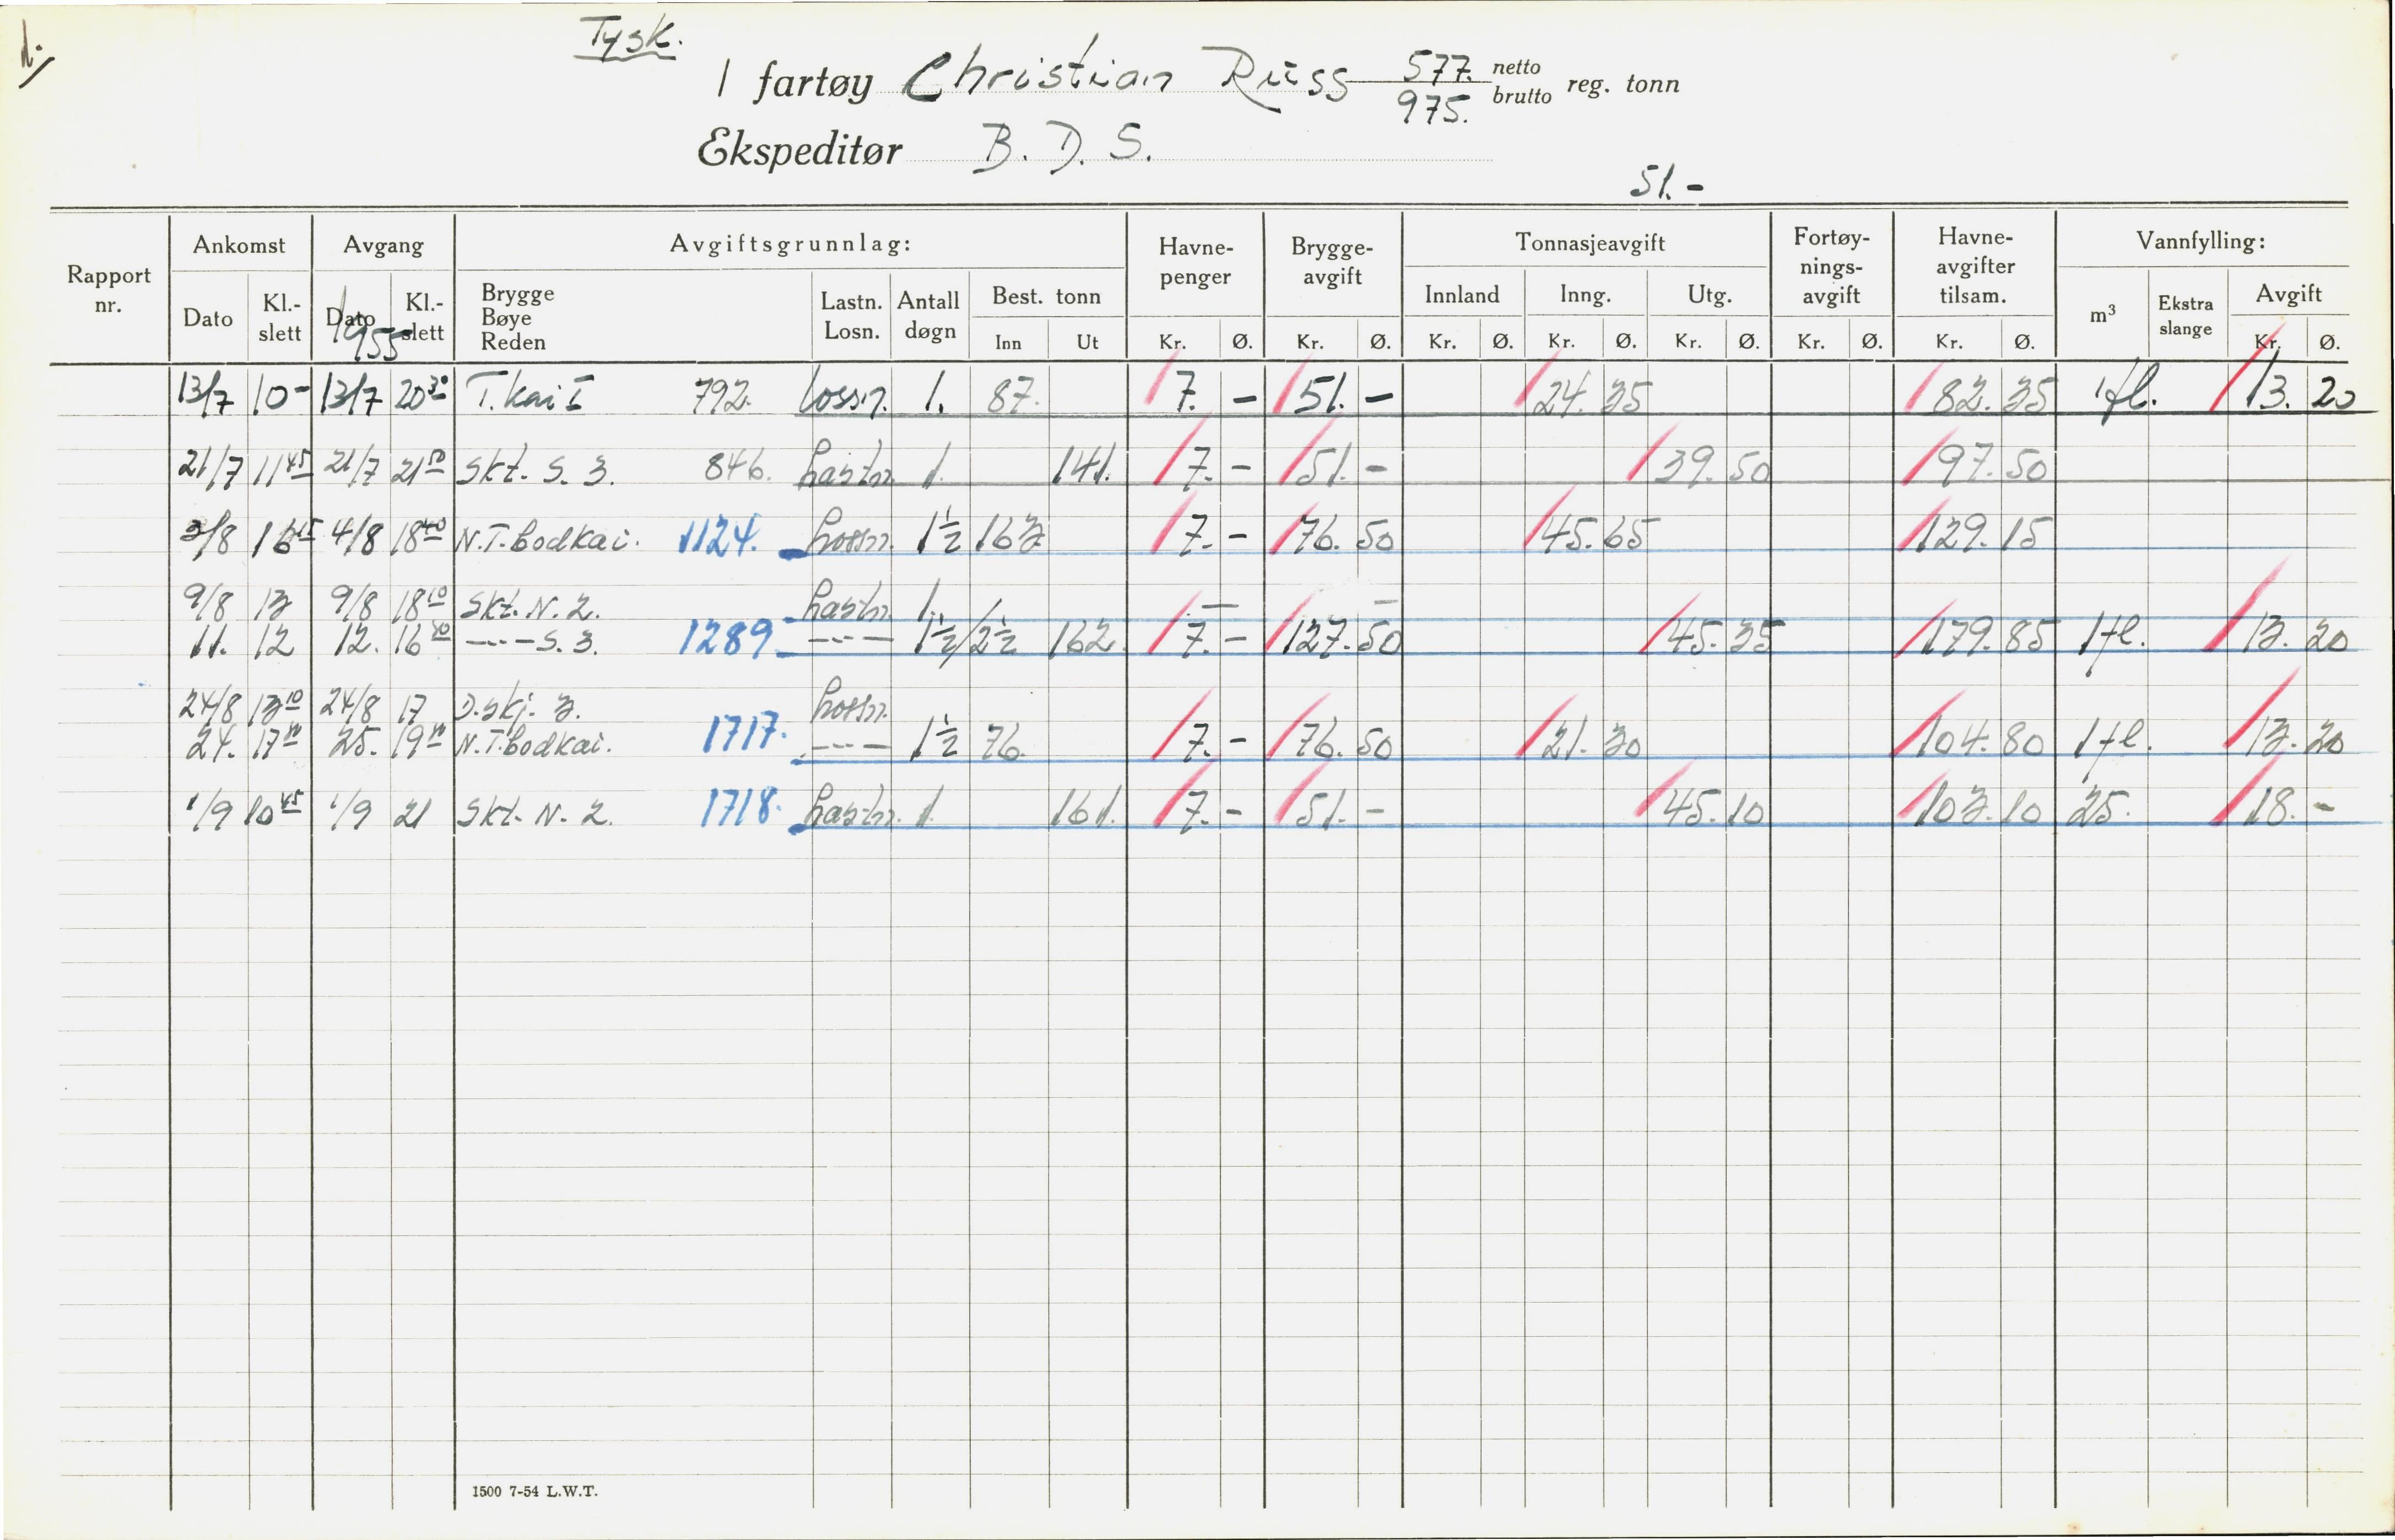 Tysk.
d.
I fartøy Christian Russ 577. netto reg. tonn
975. brutto
Ekspeditør B. D. S.
51.-
Rapport nr. Ankomst Avgang Avgiftsgrunnlag: Havne-penger Brygge-avgift Tonnasjeavgift Fortøy-nings-avgift Havne-avgifter tilsam. Vannfylling:
Dato Kl.-slett Dato Kl.-slett Brygge Bøye Reden Lastn. Losn. Antall døgn Best. tonn Innland Inng. Utg. m³ Ekstra slange Avgift
1955
Inn Ut Kr. Ø. Kr. Ø. Kr. Ø. Kr. Ø. Kr. Ø. Kr. Ø. Kr. Ø. Kr. Ø.
13/7 10- 13/7 20 30 T. kai I 792. Lossn. 1. 87. 7. - 51. - 24. 35 82. 35 1 fl. 13. 20
21/7 11 45 21/7 21 50 Skt. S. 3. 846. Lastn. 1. 141. 7. - 51. - 39. 50 97. 50
3/8 16 15 4/8 18 40 N.T. Bodkai. 1124. Lossn. 1½ 163 7. - 76. 50 45. 65 129. 15
9/8 13 9/8 18 10 Skt. N. 2. Lastn. 1. — —
11. 12 12. 16 20 ---- S. 3. 1289. ---- 1½/2½ 162. 7. - 127. 50 45. 35 179. 85 1 fl. 13. 20
24/8 13 10 24/8 17 D. skj. 3. Lossn.
24. 17 10 25. 19 10 N.T. Bodkai. 1717. ---- 1½ 76. 7. - 76. 50 21. 30 104. 80 1 fl. 13. 20
1/9 10 45 1/9 21 Skt. N. 2. 1718. Lastn. 1. 161. 7. - 51. - 45. 10 103. 10 25. 18. -
1500 7-54 L.W.T.